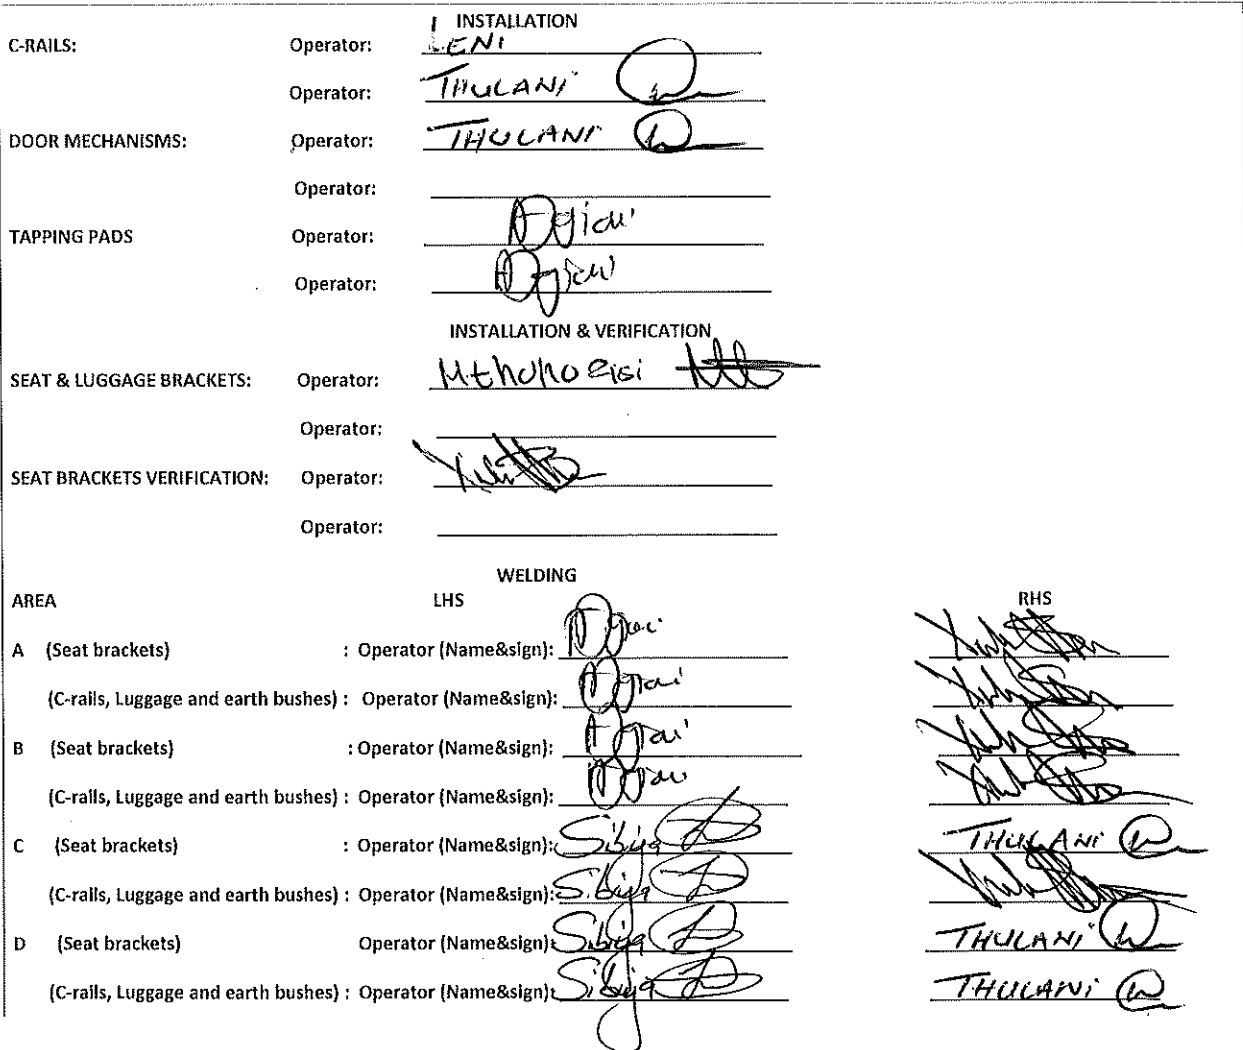 INSTALLATION
C-RAILS: Operator: LENI
Operator: THULANI
DOOR MECHANISMS: Operator: THULANI
Operator:
TAPPING PADS Operator:
Operator:
INSTALLATION & VERIFICATION
SEAT & LUGGAGE BRACKETS: Operator:
Operator:
SEAT BRACKETS VERIFICATION: Operator:
Operator:
WELDING
AREA LHS RHS
A (Seat brackets) : Operator (Name&sign):
(C-rails, Luggage and earth bushes) : Operator (Name&sign):
B (Seat brackets) : Operator (Name&sign):
(C-rails, Luggage and earth bushes) : Operator (Name&sign):
C (Seat brackets) : Operator (Name&sign): Sibiya THULANI
(C-rails, Luggage and earth bushes) : Operator (Name&sign): Sibiya
D (Seat brackets) Operator (Name&sign): Sibiya THULANI
(C-rails, Luggage and earth bushes) : Operator (Name&sign): Sibiya THULANI